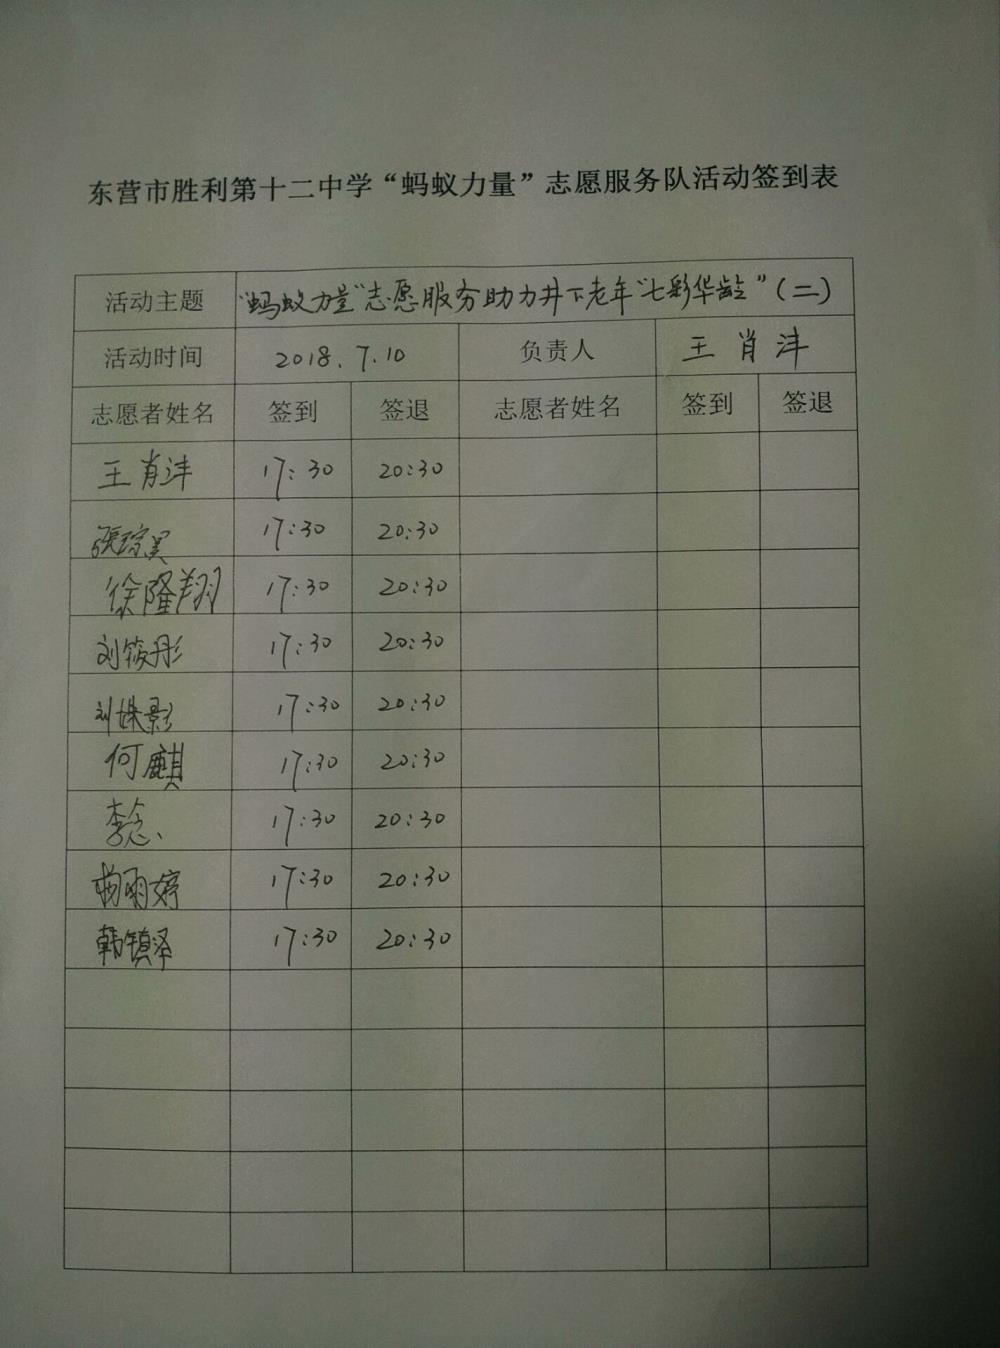 东营市胜利第十二中学“蚂蚁力量”志愿服务队活动签到表
活动主题 “蚂蚁力量”志愿服务助力井下老年“七彩华龄”（二）
活动时间 2018.7.10 负责人 王肖沣
志愿者姓名 签到 签退 志愿者姓名 签到 签退
王肖沣 17:30 20:30
17:30 20:30
徐隆翔 17:30 20:30
刘筱彤 17:30 20:30
刘姝影 17:30 20:30
何麒 17:30 20:30
李念 17:30 20:30
杨雨婷 17:30 20:30
韩镇泽 17:30 20:30